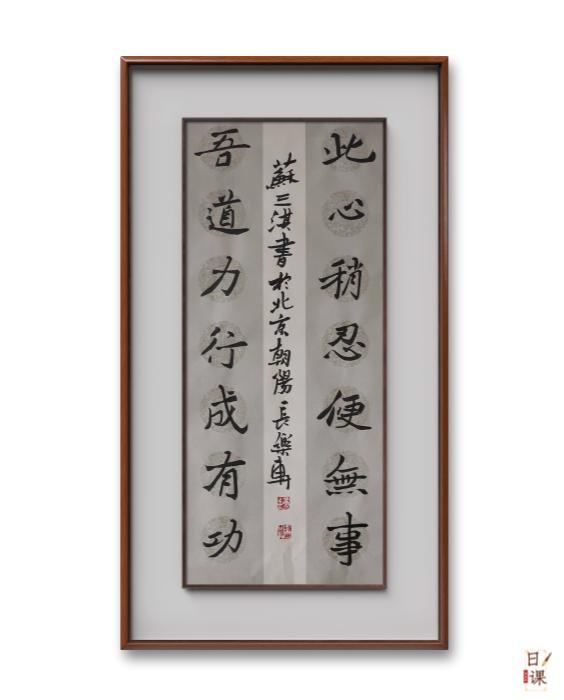 此心稍忍便無事
吾道力行成有功
蘇三淇書於北京朝陽長樂軒
日课